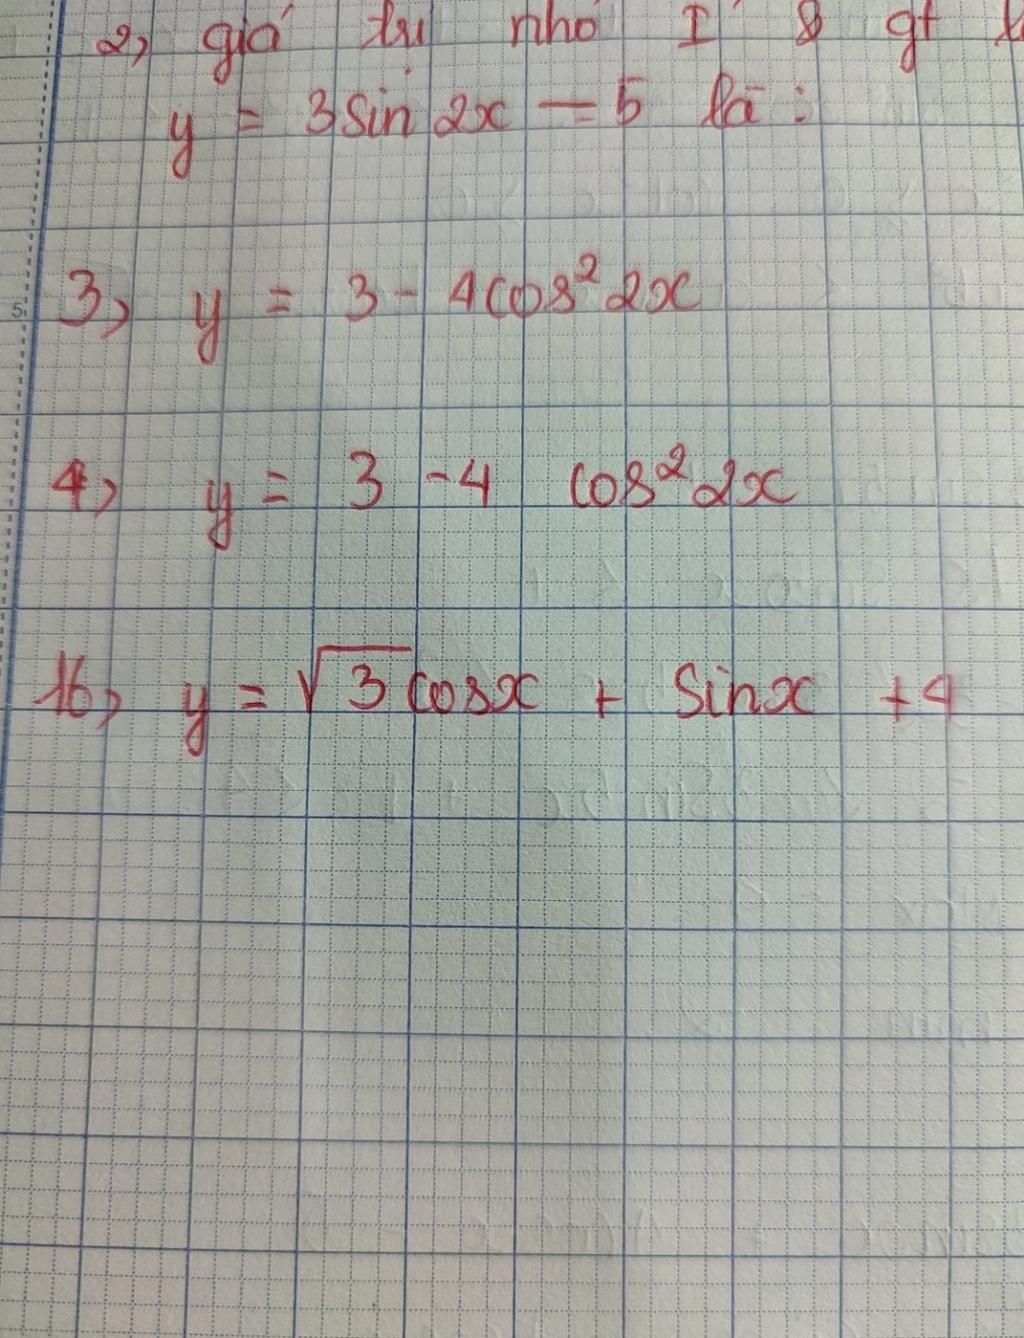 2, giá trị nhỏ I & gt
y = 3sin 2x - 5 là :
3, y = 3 - 4cos² 2x
4, y = 3 - 4 cos² 2x
16, y = √3 cosx + sinx + 4